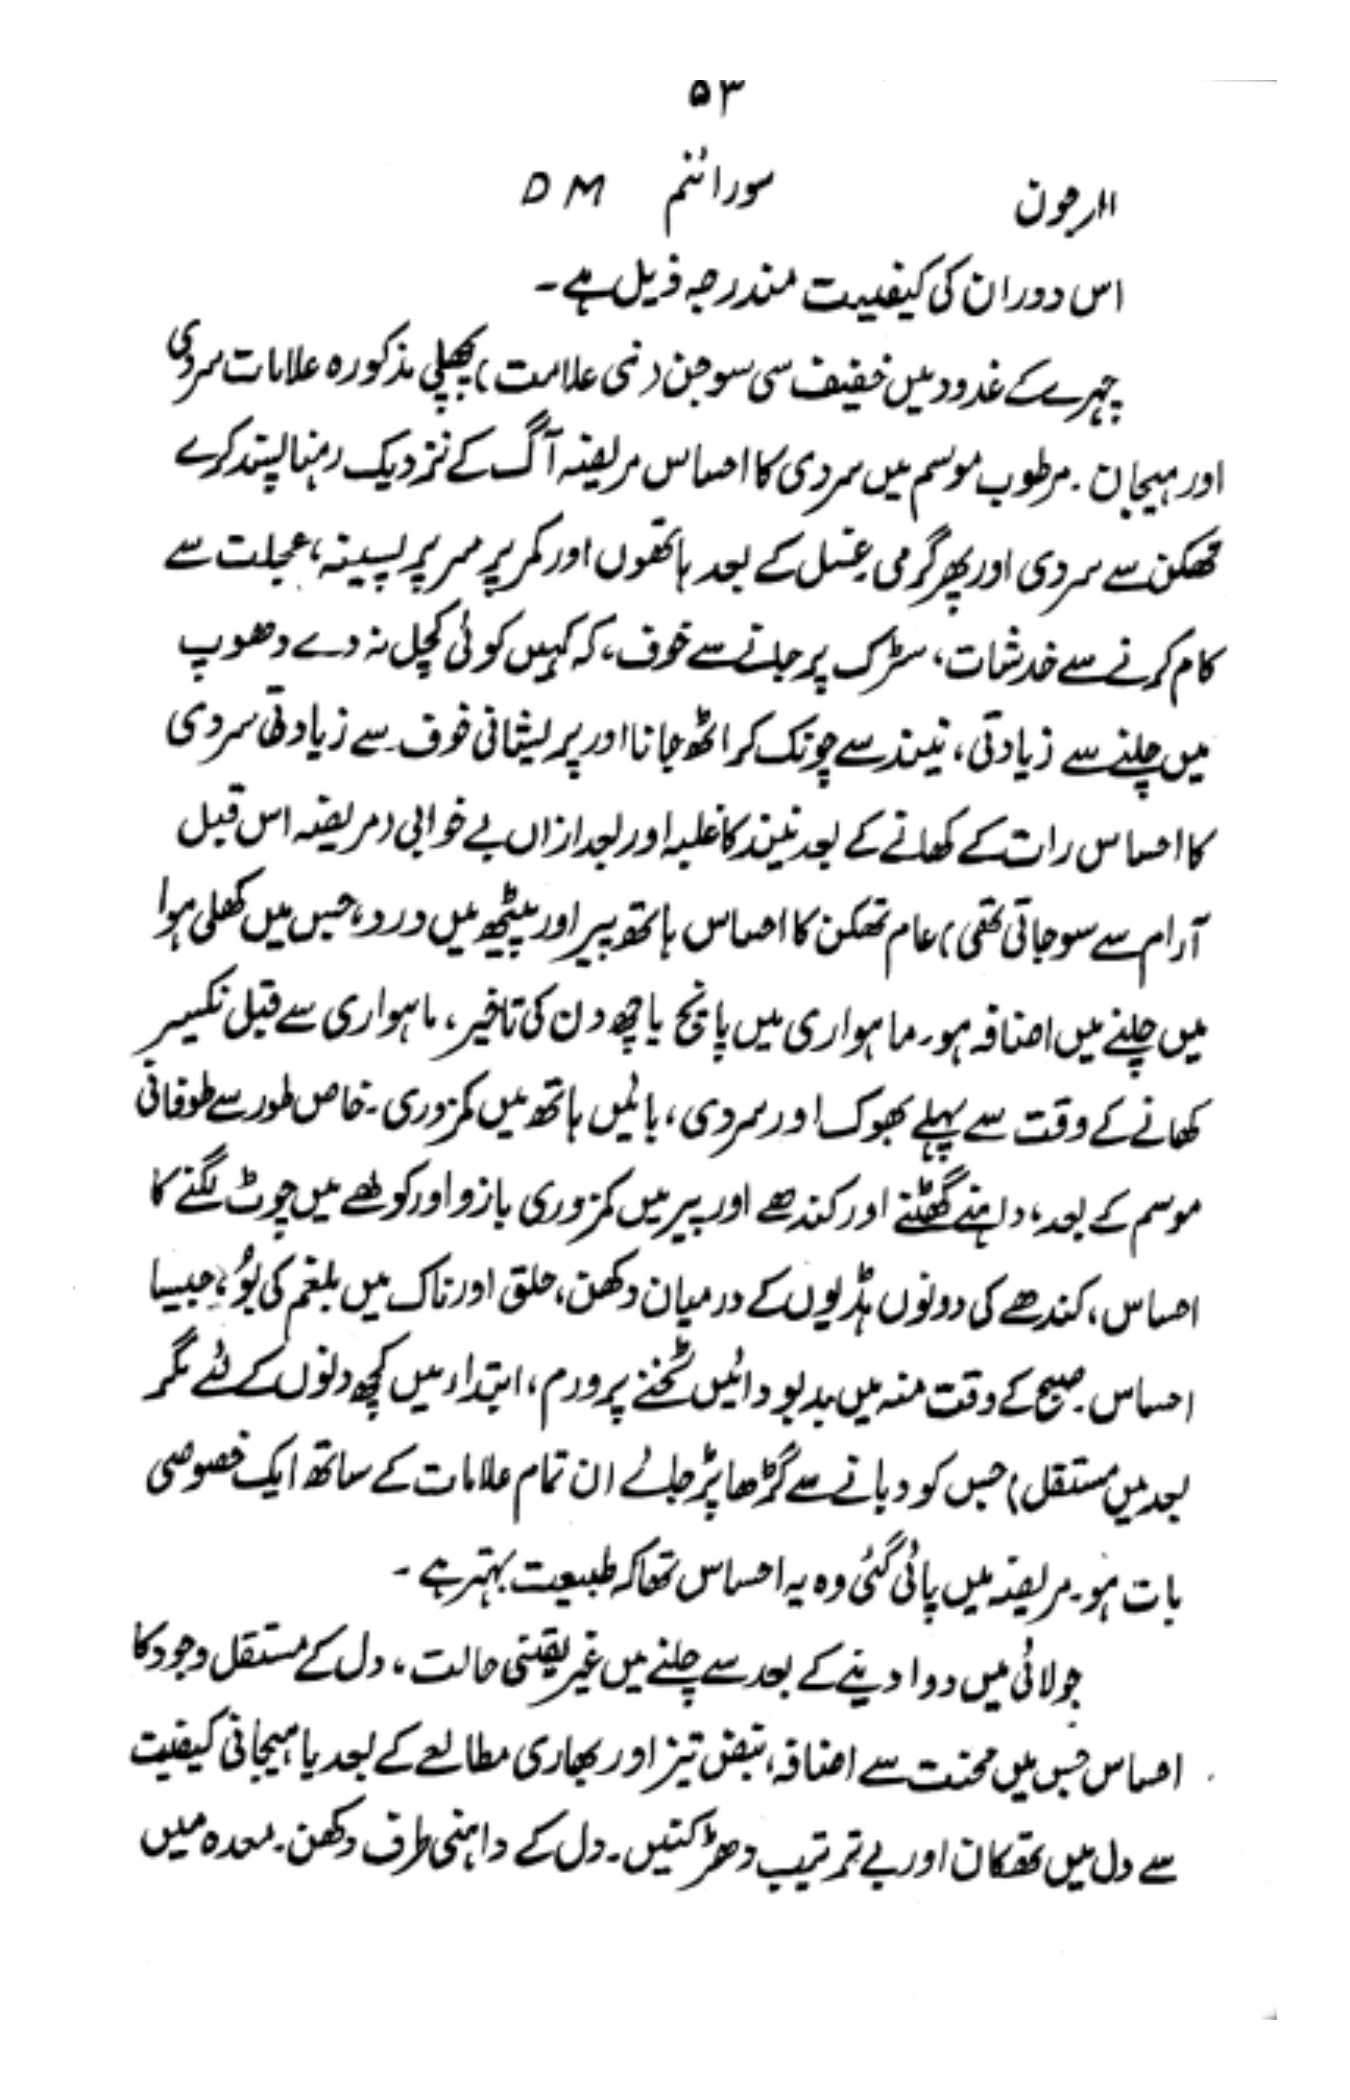 ۵۳
۱۱ر جون سورائنم D M
اس دوران کی کیفیت مندرجہ ذیل ہے۔
چہرے کے غدود میں خفیف سی سوجن (نئی علامت) پچھلی مذکورہ علامات سردی
اور ہیجان۔ مرطوب موسم میں سردی کا احساس مریضہ آگ کے نزدیک رہنا پسند کرے
تھکن سے سردی اور پھر گرمی۔ غسل کے بعد ہاتھوں اور کمر پر سر پر پسینہ، عجلت سے
کام کرنے سے خدشات، سڑک پر جانے سے خوف، کہ کہیں کوئی کچل نہ دے دھوپ
میں چلنے سے زیادتی، نیند سے چونک کر اٹھ جانا اور پریشانی خوف سے زیادتی سردی
کا احساس رات کے کھانے کے بعد نیند کا غلبہ اور بعد ازاں بے خوابی (مریضہ اس قبل
آرام سے سو جاتی تھی) عام تھکن کا احساس ہاتھ پیر اور پیٹھ میں درد، جس میں کھلی ہوا
میں چلنے میں اضافہ ہو۔ ماہواری میں پانچ یا چھ دن کی تاخیر، ماہواری سے قبل نکسیر
کھانے کے وقت سے پہلے بھوک اور سردی، بائیں ہاتھ میں کمزوری۔ خاص طور سے طوفانی
موسم کے بعد، داہنے گھٹنے اور کندھے اور پیر میں کمزوری بازو اور کولھے میں چوٹ لگنے کا
احساس، کندھے کی دونوں ہڈیوں کے درمیان دکھن، حلق اور ناک میں بلغم کی بُو، جیسا
احساس۔ صبح کے وقت منہ میں بدبو دائیں ٹخنے پر ورم، ابتدار میں کچھ دنوں کے لئے مگر
بعد میں مستقل) جس کو دبانے سے گڑھا پڑ جائے ان تمام علامات کے ساتھ ایک خصوصی
بات ہو۔ مریضہ میں پائی گئی وہ یہ احساس تھا کہ طبیعت بہتر ہے۔
جولائی میں دوا دینے کے بعد سے چلنے میں غیر یقینی حالت، دل کے مستقل وجود کا
احساس جس میں محنت سے اضافہ، نبض تیز اور بھاری مطالعے کے بعد یا ہیجانی کیفیت
سے دل میں تھکان اور بے ترتیب دھڑکنیں۔ دل کے داہنی طرف دکھن۔ معدہ میں